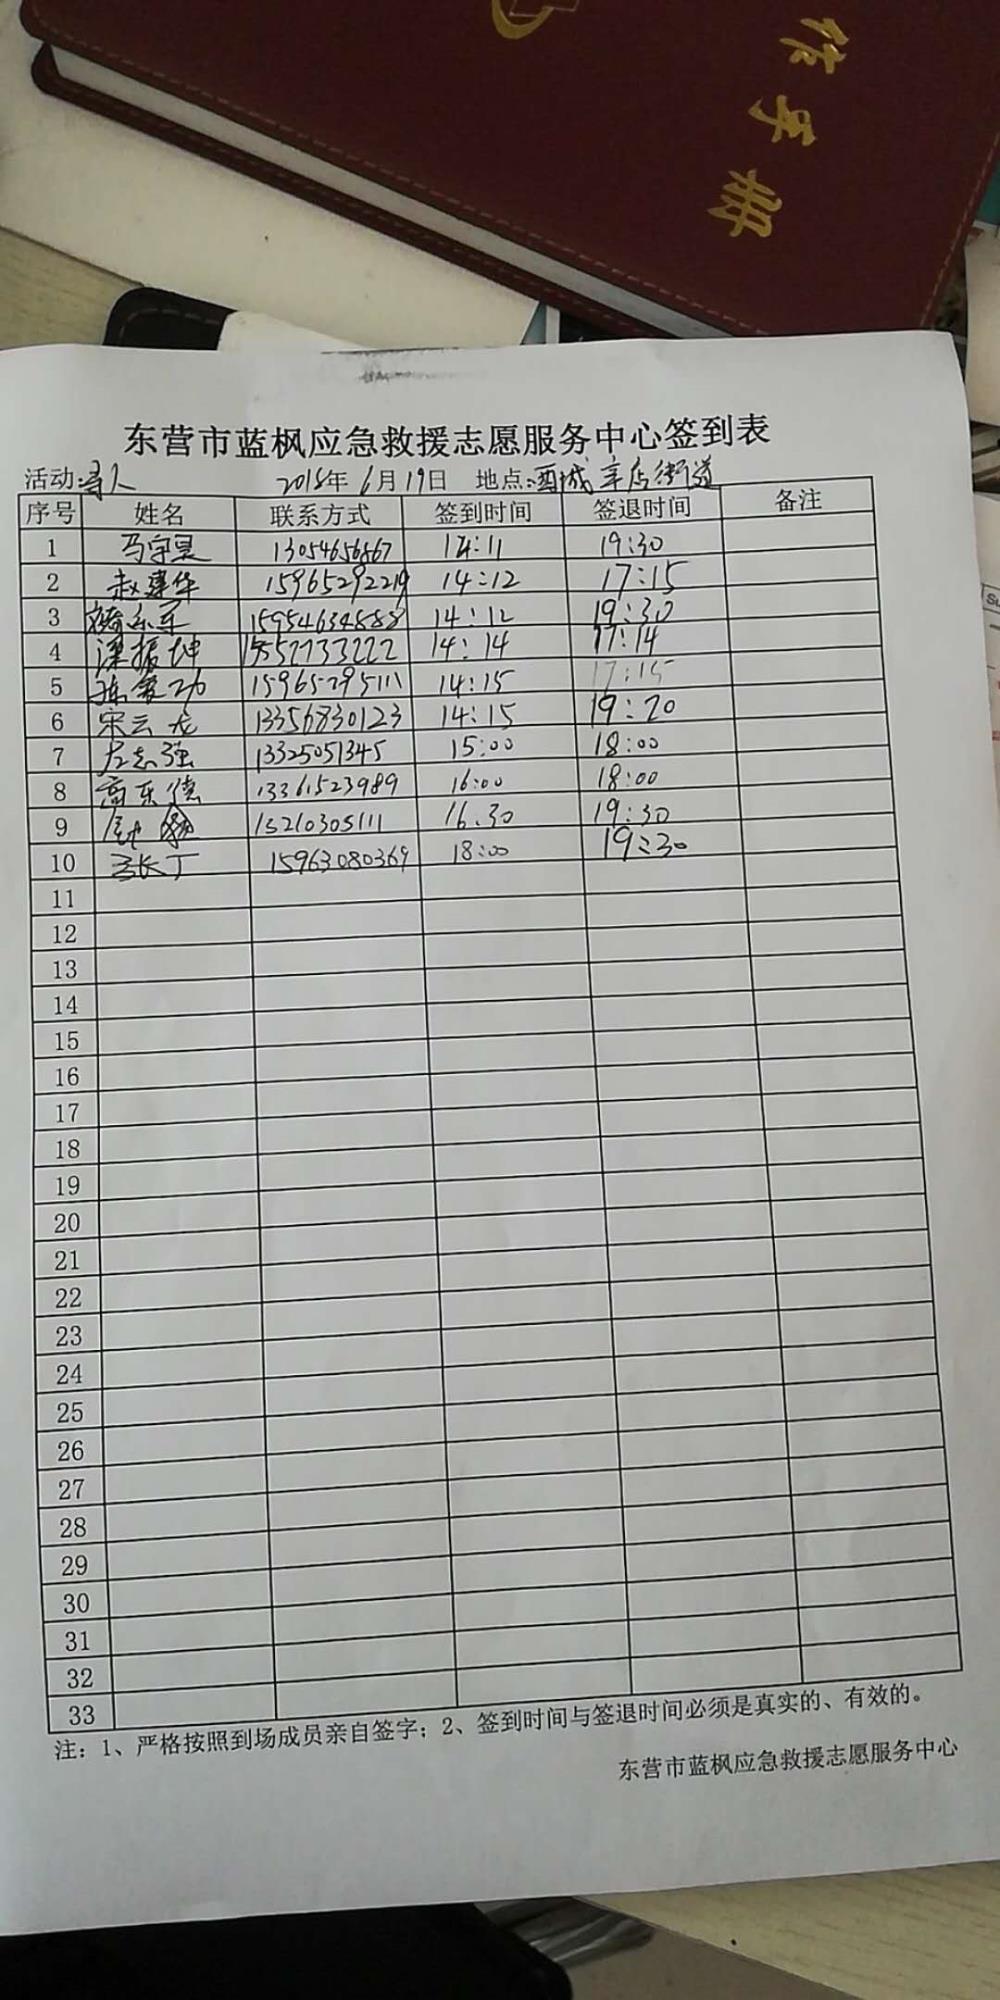 作手册
东营市蓝枫应急救援志愿服务中心签到表
活动:寻人 2018年 6月19日 地点:西城辛店街道
序号 姓名 联系方式 签到时间 签退时间 备注
1 马宇昊 13054656867 14:11 19:30
2 赵建华 15965292219 14:12 17:15
3 15954634888 14:12 19:30
4 梁振坤 15552733222 14:14 17:14
5 15965295111 14:15 17:15
6 宋云龙 13356830123 14:15 19:20
7 左志强 13325051345 15:00 18:00
8 高乐德 13361523989 16:00 18:00
9 15210305111 16.30 19:30
10 15963080369 18:00 19:30
11
12
13
14
15
16
17
18
19
20
21
22
23
24
25
26
27
28
29
30
31
32
33
注：1、严格按照到场成员亲自签字；2、签到时间与签退时间必须是真实的、有效的。
东营市蓝枫应急救援志愿服务中心